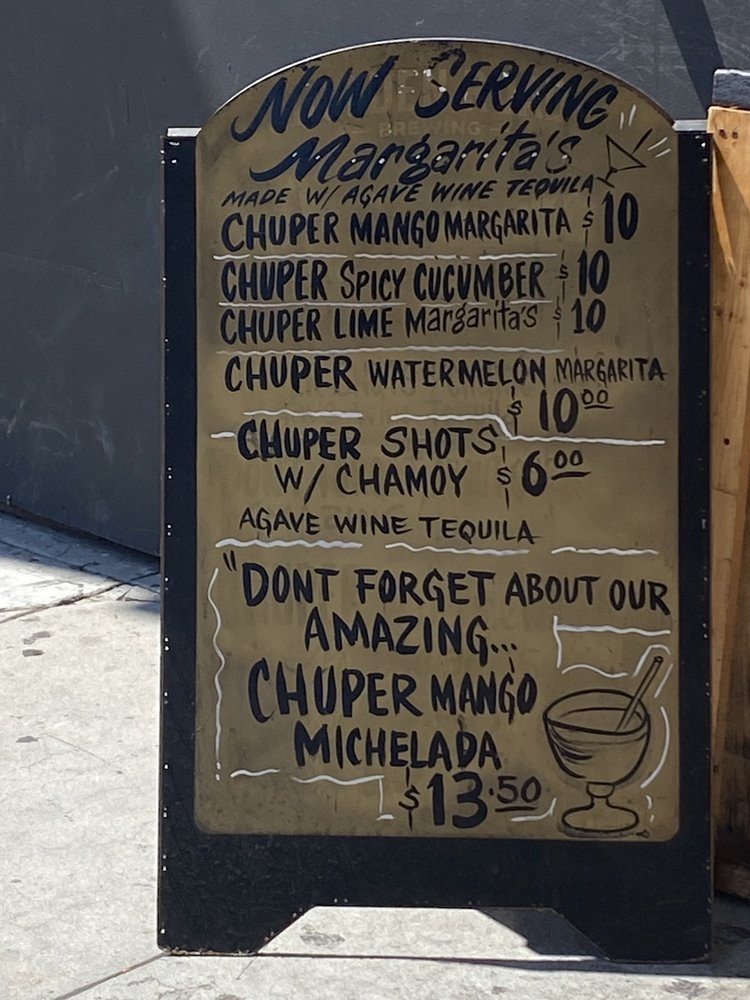 NOW SERVING
BREWING
Margarita's
MADE W/ AGAVE WINE TEQUILA
CHUPER MANGO MARGARITA $10
CHUPER SPICY CUCUMBER $10
CHUPER LIME Margarita's $10
CHUPER WATERMELON MARGARITA
$10.00
CHUPER SHOTS
W/ CHAMOY $6.00
AGAVE WINE TEQUILA
"DONT FORGET ABOUT OUR
AMAZING...
CHUPER MANGO
MICHELADA
$13.50